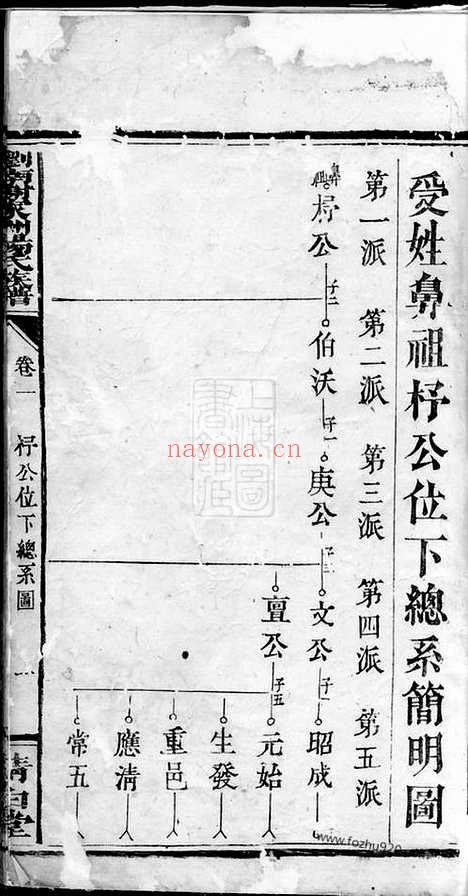 受姓鼻祖杼公位下總系簡明圖
第一派 第二派 第三派 第四派 第五派
鼻祖 杼公 子二
伯沃 子一
庚公 子二
文公 子一
昭成
亶公 子五
元始
生發
重邑
應清
常五
楊氏族譜
卷一 杼公位下總系圖 一
清白堂
上海圖書館
nayona.cn
www.fozhu920.com